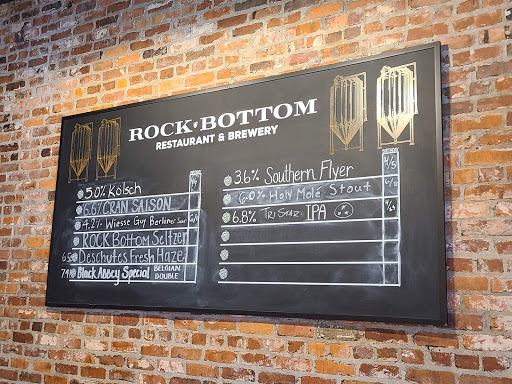 ROCK BOTTOM
RESTAURANT & BREWERY
5.0% Kölsch
6.6% CRAN SAISON
4.2% Wiesse Guy Berliner
ROCK Bottom Seltzer
Deschutes Fresh Haze
Black Abbey Special BELGIAN DOUBLE
3.6% Southern Flyer
6.0% Holy Molé Stout
6.8% TRI STAR IPA